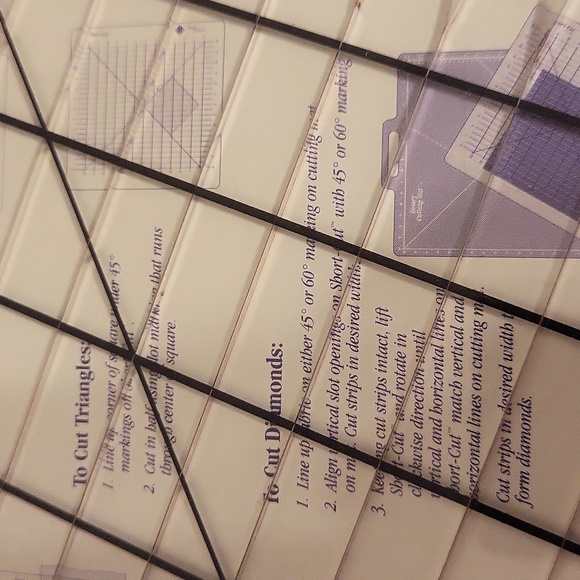 To Cut Triangles:
1. Line up corner of square under 45°
markings off
2. Cut in half using slot that runs
through center square.
To Cut Diamonds:
1. Line up fabric on either 45° or 60° marking on cutting
2. Align vertical slot openings on Short-Cut™ with 45° or 60° marking
on Cut strips in desired width.
3. Keep cut strips intact, lift
Short-Cut and rotate in
clockwise direction until
vertical and horizontal lines on
Short-Cut™ match vertical and
horizontal lines on cutting
Cut strips in desired width
form diamonds.